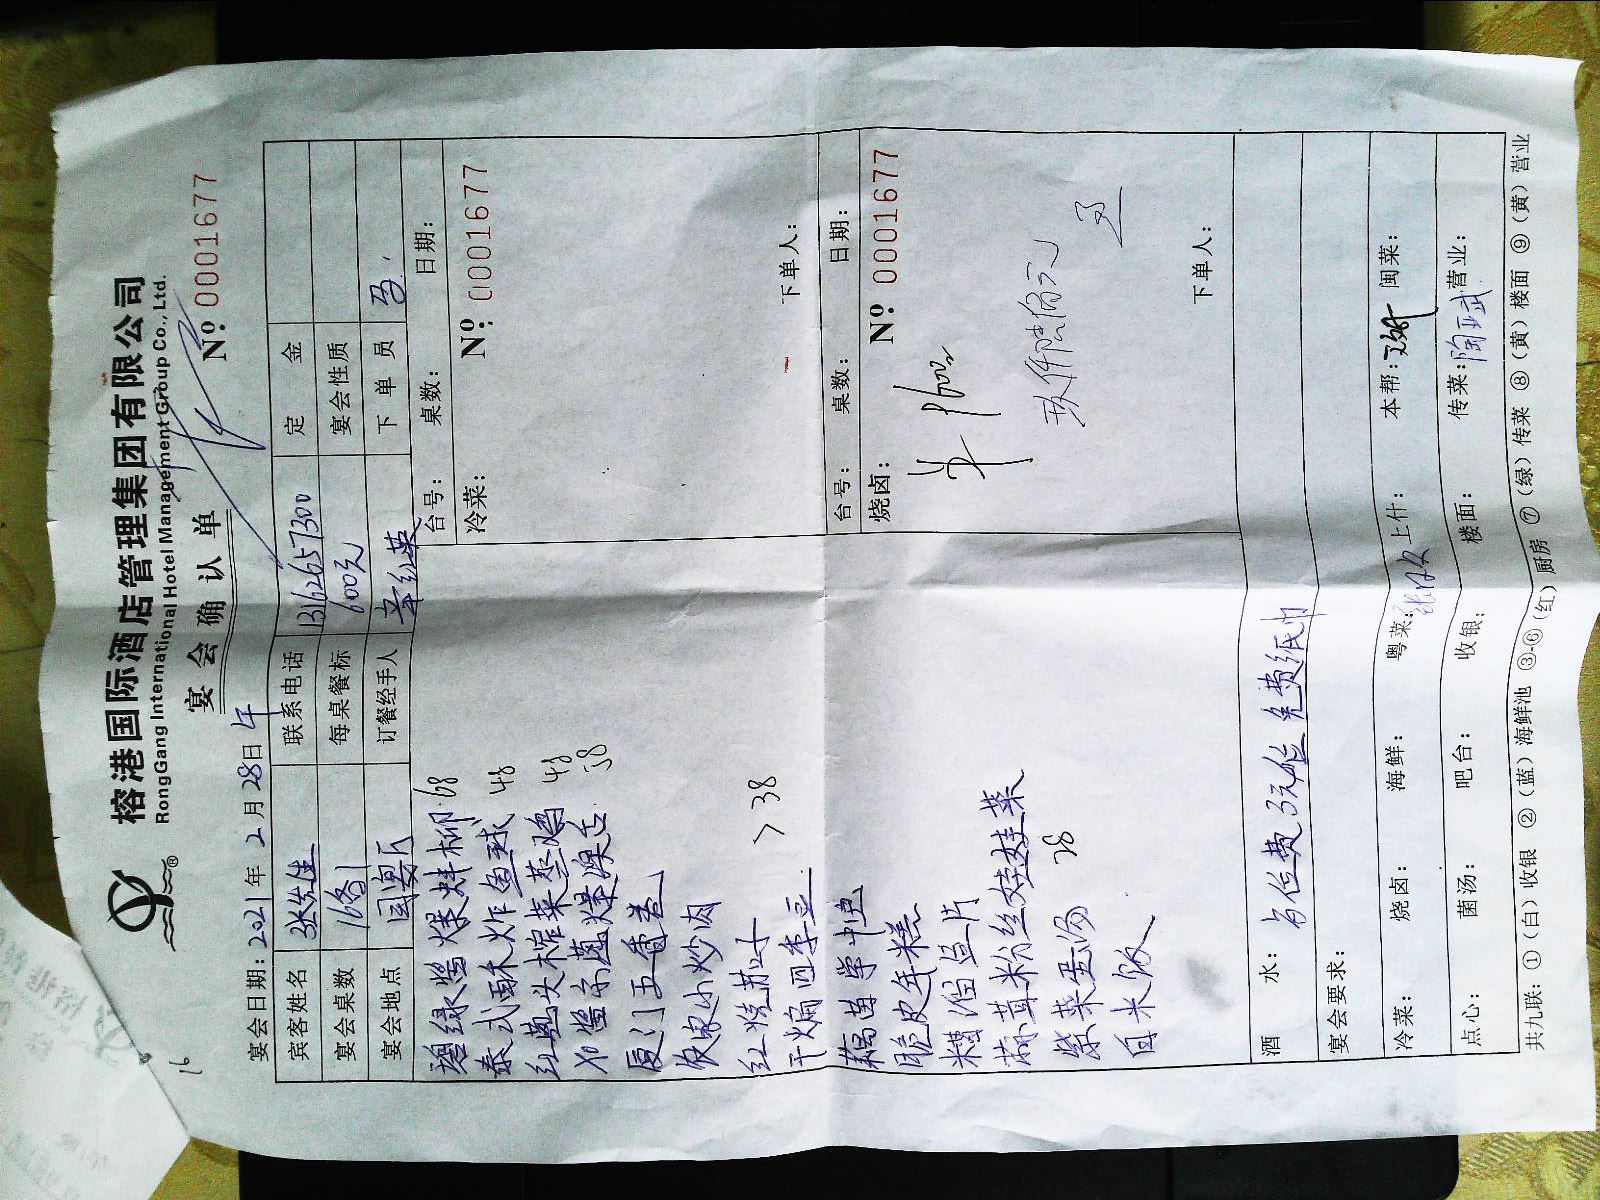 榕港国际酒店管理集团有限公司
RongGang International Hotel Management Group Co., Ltd.
宴会确认单
№: 0001677
宴会日期: 2021年2月28日午
宾客姓名 张先生 联系电话 13162657300 定金
宴会桌数 1桌 每桌餐标 600元 宴会性质
宴会地点 国宴厅 订餐经手人 辛红英 下单员
台号: 桌数: 日期:
冷菜: №: 0001677
下单人:
台号: 桌数: 日期:
烧卤: №: 0001677
下单人:
爆蚌柳 68
泰式酥炸鱼球 48
红葱头榨菜蒸鸡 48
XO酱 菌爆 38
厦门五香卷
农家小炒肉
红烧
干煸四季豆 >38
脆皮年糕
糟溜鱼片
蒜茸粉丝娃娃菜
紫菜蛋汤 28
白米饭
酒水: 占位费3元/位 免费纸巾
宴会要求:
冷菜: 烧卤: 海鲜: 粤菜: 上什: 本帮: 闽菜:
点心: 菌汤: 吧台: 收银: 楼面: 传菜: 营业:
共九联: ①(白)收银 ②(蓝)海鲜池 ③-⑥(红)厨房 ⑦(绿)传菜 ⑧(黄)楼面 ⑨(黄)营业
16